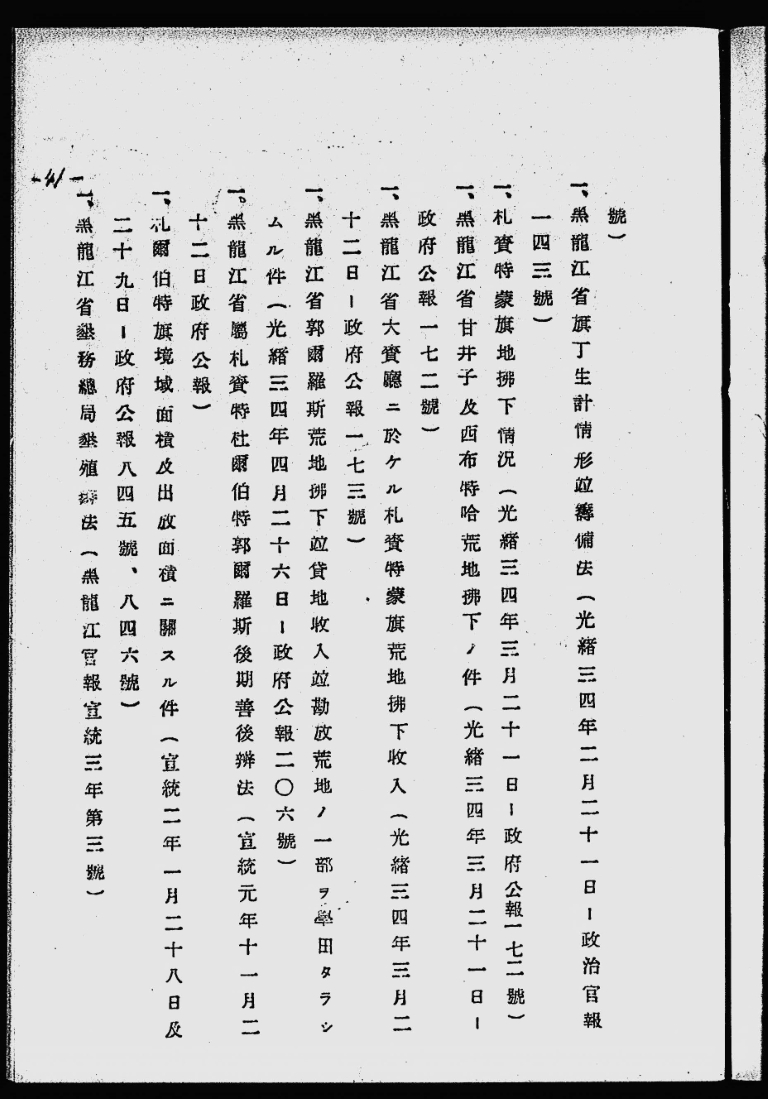 號)
一、黑龍江省旗丁生計情形竝籌備法(光緒三四年二月二十一日ー政治官報
一四三號)
一、札賚特蒙旗地拂下情況(光緒三四年三月二十一日ー政府公報一七二號)
一、黑龍江省甘井子及西布特哈荒地拂下ノ件(光緒三四年三月二十一日ー
政府公報一七二號)
一、黑龍江省大賚廳ニ於ケル札賚特蒙旗荒地拂下收入(光緒三四年三月二
十二日ー政府公報一七三號)
一、黑龍江省郭爾羅斯荒地拂下竝貸地收入竝勘放荒地ノ一部ヲ學田タラシ
ムル件(光緒三四年四月二十六日ー政府公報二〇六號)
一、黑龍江省屬札賚特杜爾伯特郭爾羅斯後期善後辨法(宣統元年十一月二
十二日政府公報)
一、札爾伯特旗境域面積及出放面積ニ關スル件(宣統二年一月二十八日及
二十九日ー政府公報八四五號、八四六號)
一、黑龍江省墾務總局墾殖辨法(黑龍江官報宣統三年第三號)
-41-